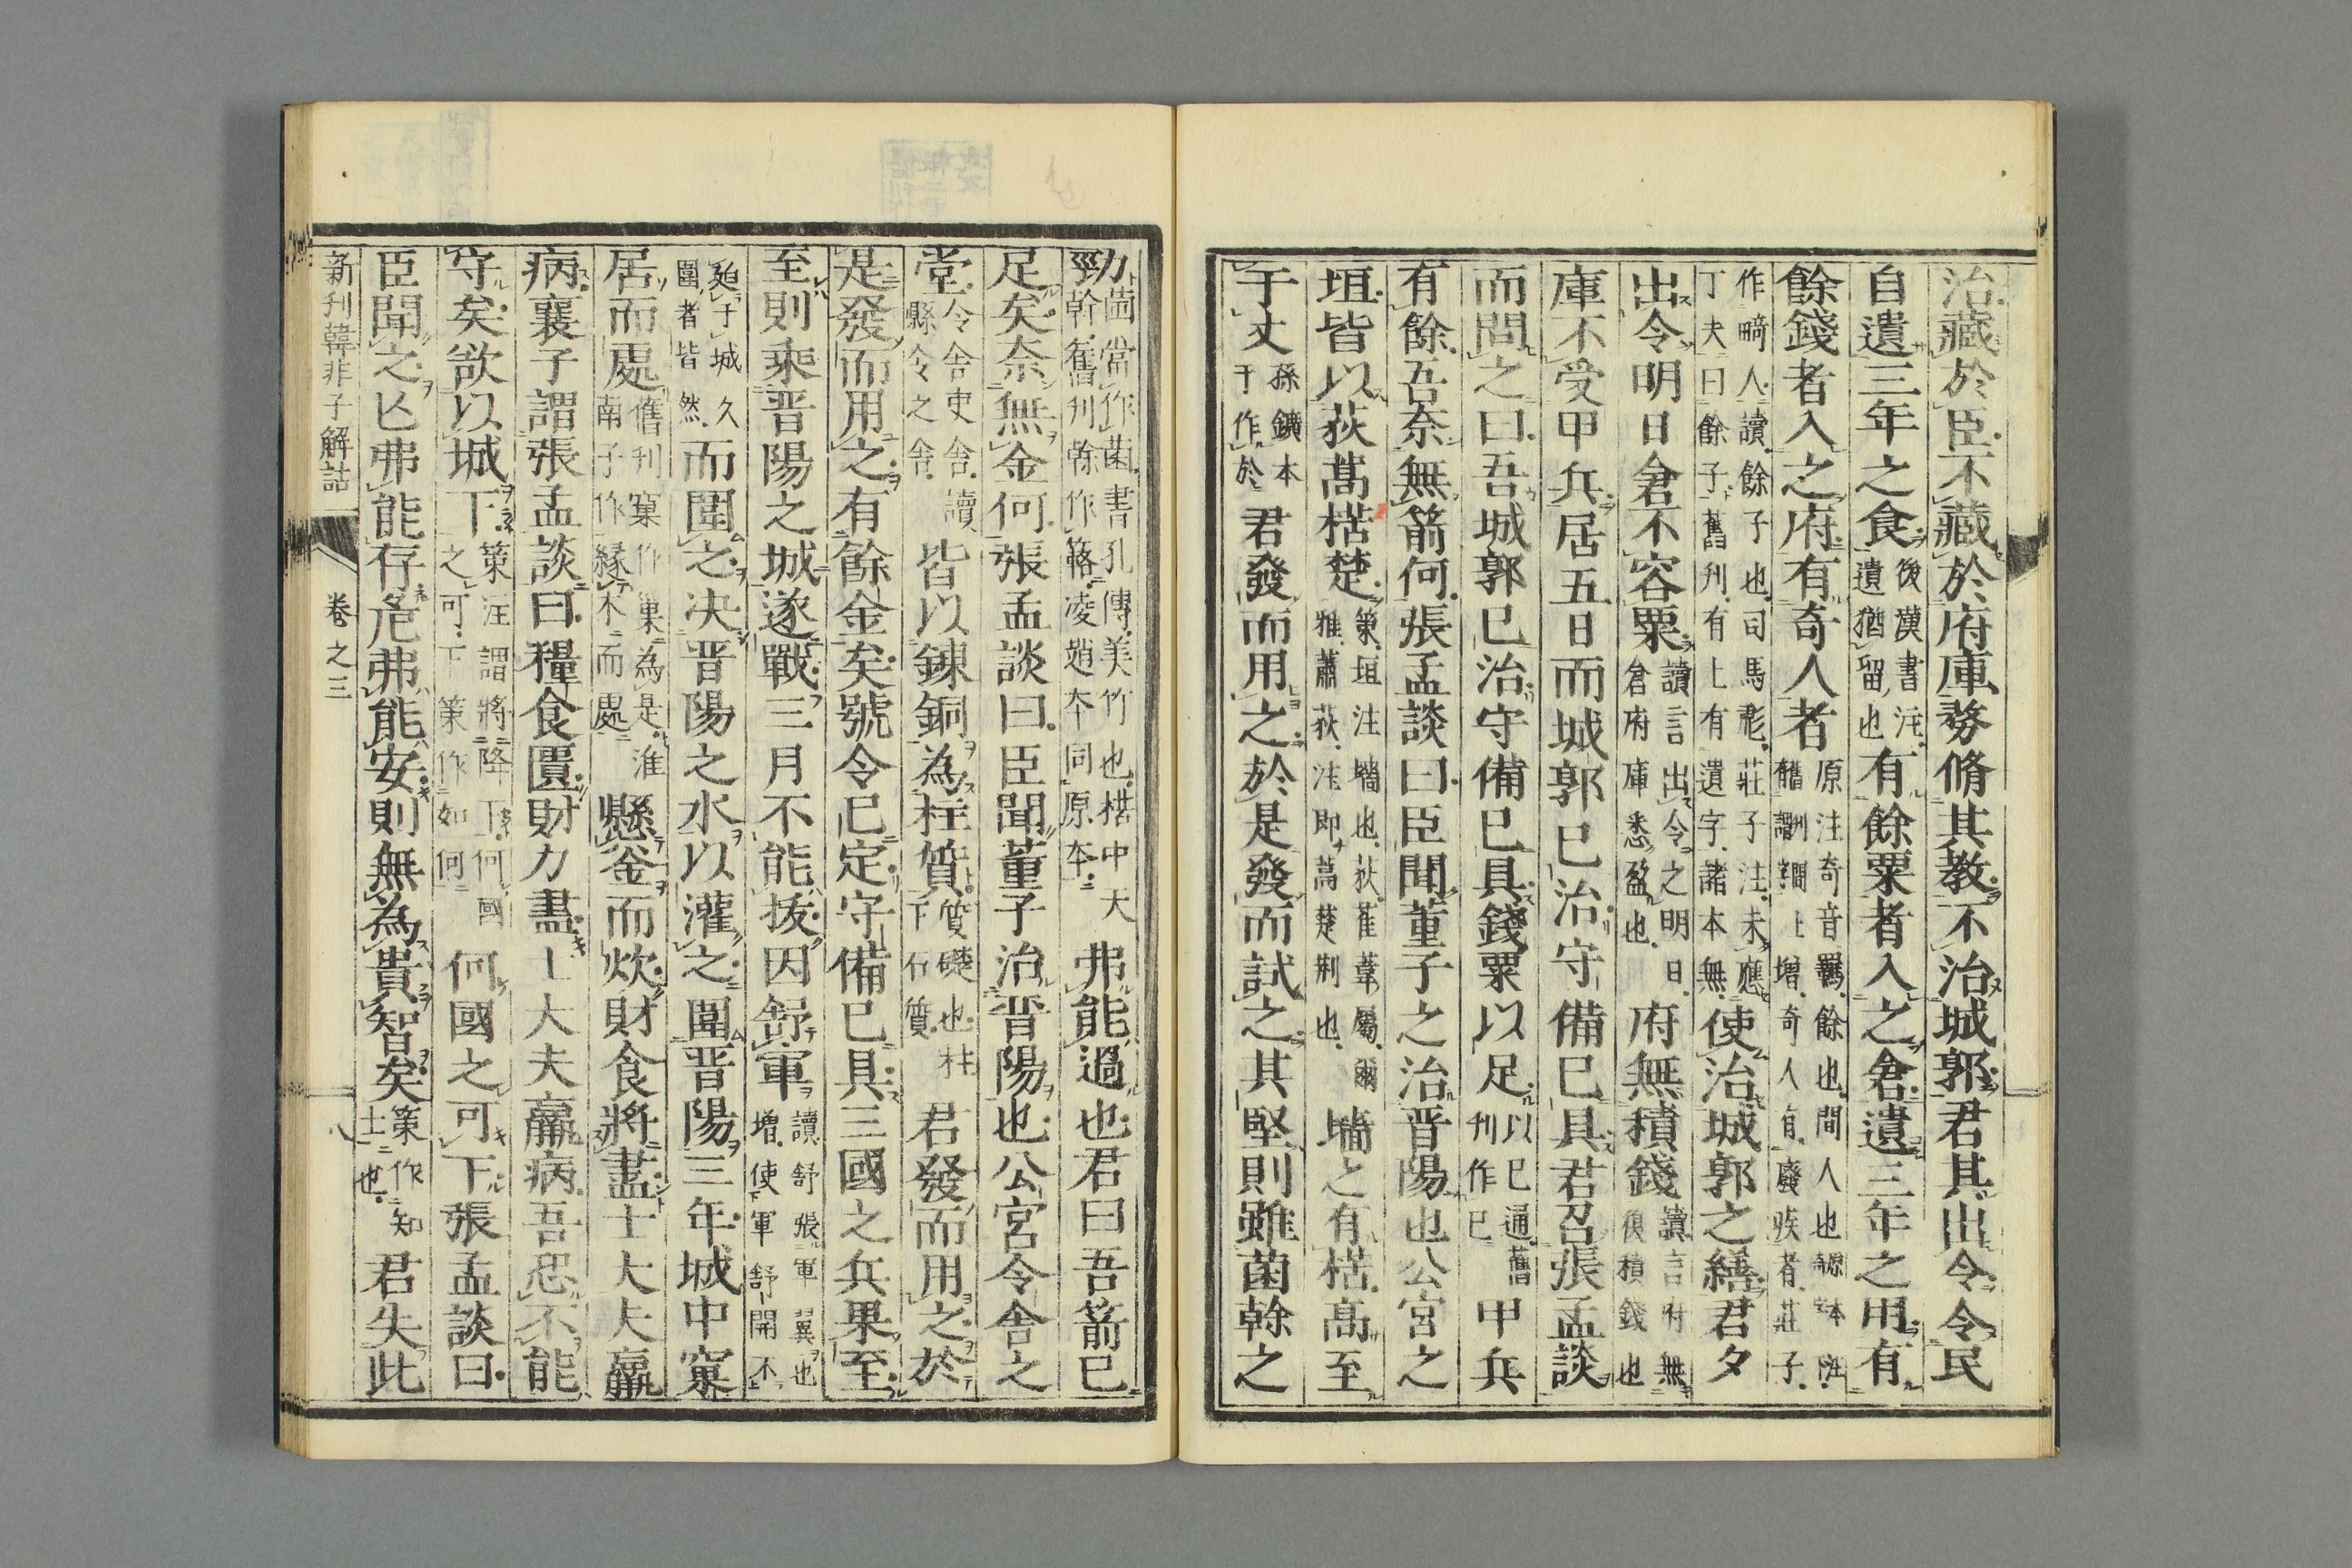 治藏於臣不藏於府庫務脩其教不治城郭君其出令令民
自遺三年之食後漢書注遺猶留也有餘粟者入之倉遺三年之用有
餘錢者入之府有奇人者原注奇音羈餘也間人也
作畸人讀餘子也司馬彪莊子注未應丁夫曰餘子舊刋有上有遺字諸本無使治城郭之繕君夕
出令明日倉不容粟讀言出令之明日倉府庫悉盈也府無積錢讀言府無復積錢也
庫不受甲兵居五日而城郭已治守備已具君召張孟談
而問之曰吾城郭已治守備已具錢粟以足以已通舊刊作已甲兵
有餘吾奈無箭何張孟談曰臣聞董子之治晋陽也公宮之
垣皆以荻蒿楛楚策垣注墻也荻萑葦屬爾雅蕭荻注即蒿楚荆也墻之有楛高至
于丈孫鑛本于作於君發而用之於是發而試之其堅則雖菌幹之
勁菌當作箘書孔傳美竹也楛中天幹舊刋餘作簵凌趙本同原本弗能過也君曰吾箭已
足矣奈無金何張孟談曰臣聞董子治晋陽也公宮令舍之
堂令舍吏舍讀縣令之舍皆以鍊銅為柱質質礎也柱下石質君發而用之於
是發而用之有餘金矣號令已定守備已具三國之兵果至
至則乘晋陽之城遂戰三月不能拔因舒軍讀舒張軍翼也增使軍舒開不
廹于城久圍者皆然而圍之决晋陽之水以灌之圍晋陽三年城中窠
居而處舊刊窠作巢為是淮南子作縁木而處懸釜而炊財食將盡士大夫羸
病襄子謂張孟談曰糧食匱財力盡士大夫羸病吾恐不能
守矣欲以城下策注謂將降下何國之可下策作如何何國之可下張孟談曰
臣聞之亡弗能存危弗能安則無為貴智矣策作知士也君失此
新刋韓非子解詁 卷之三 八